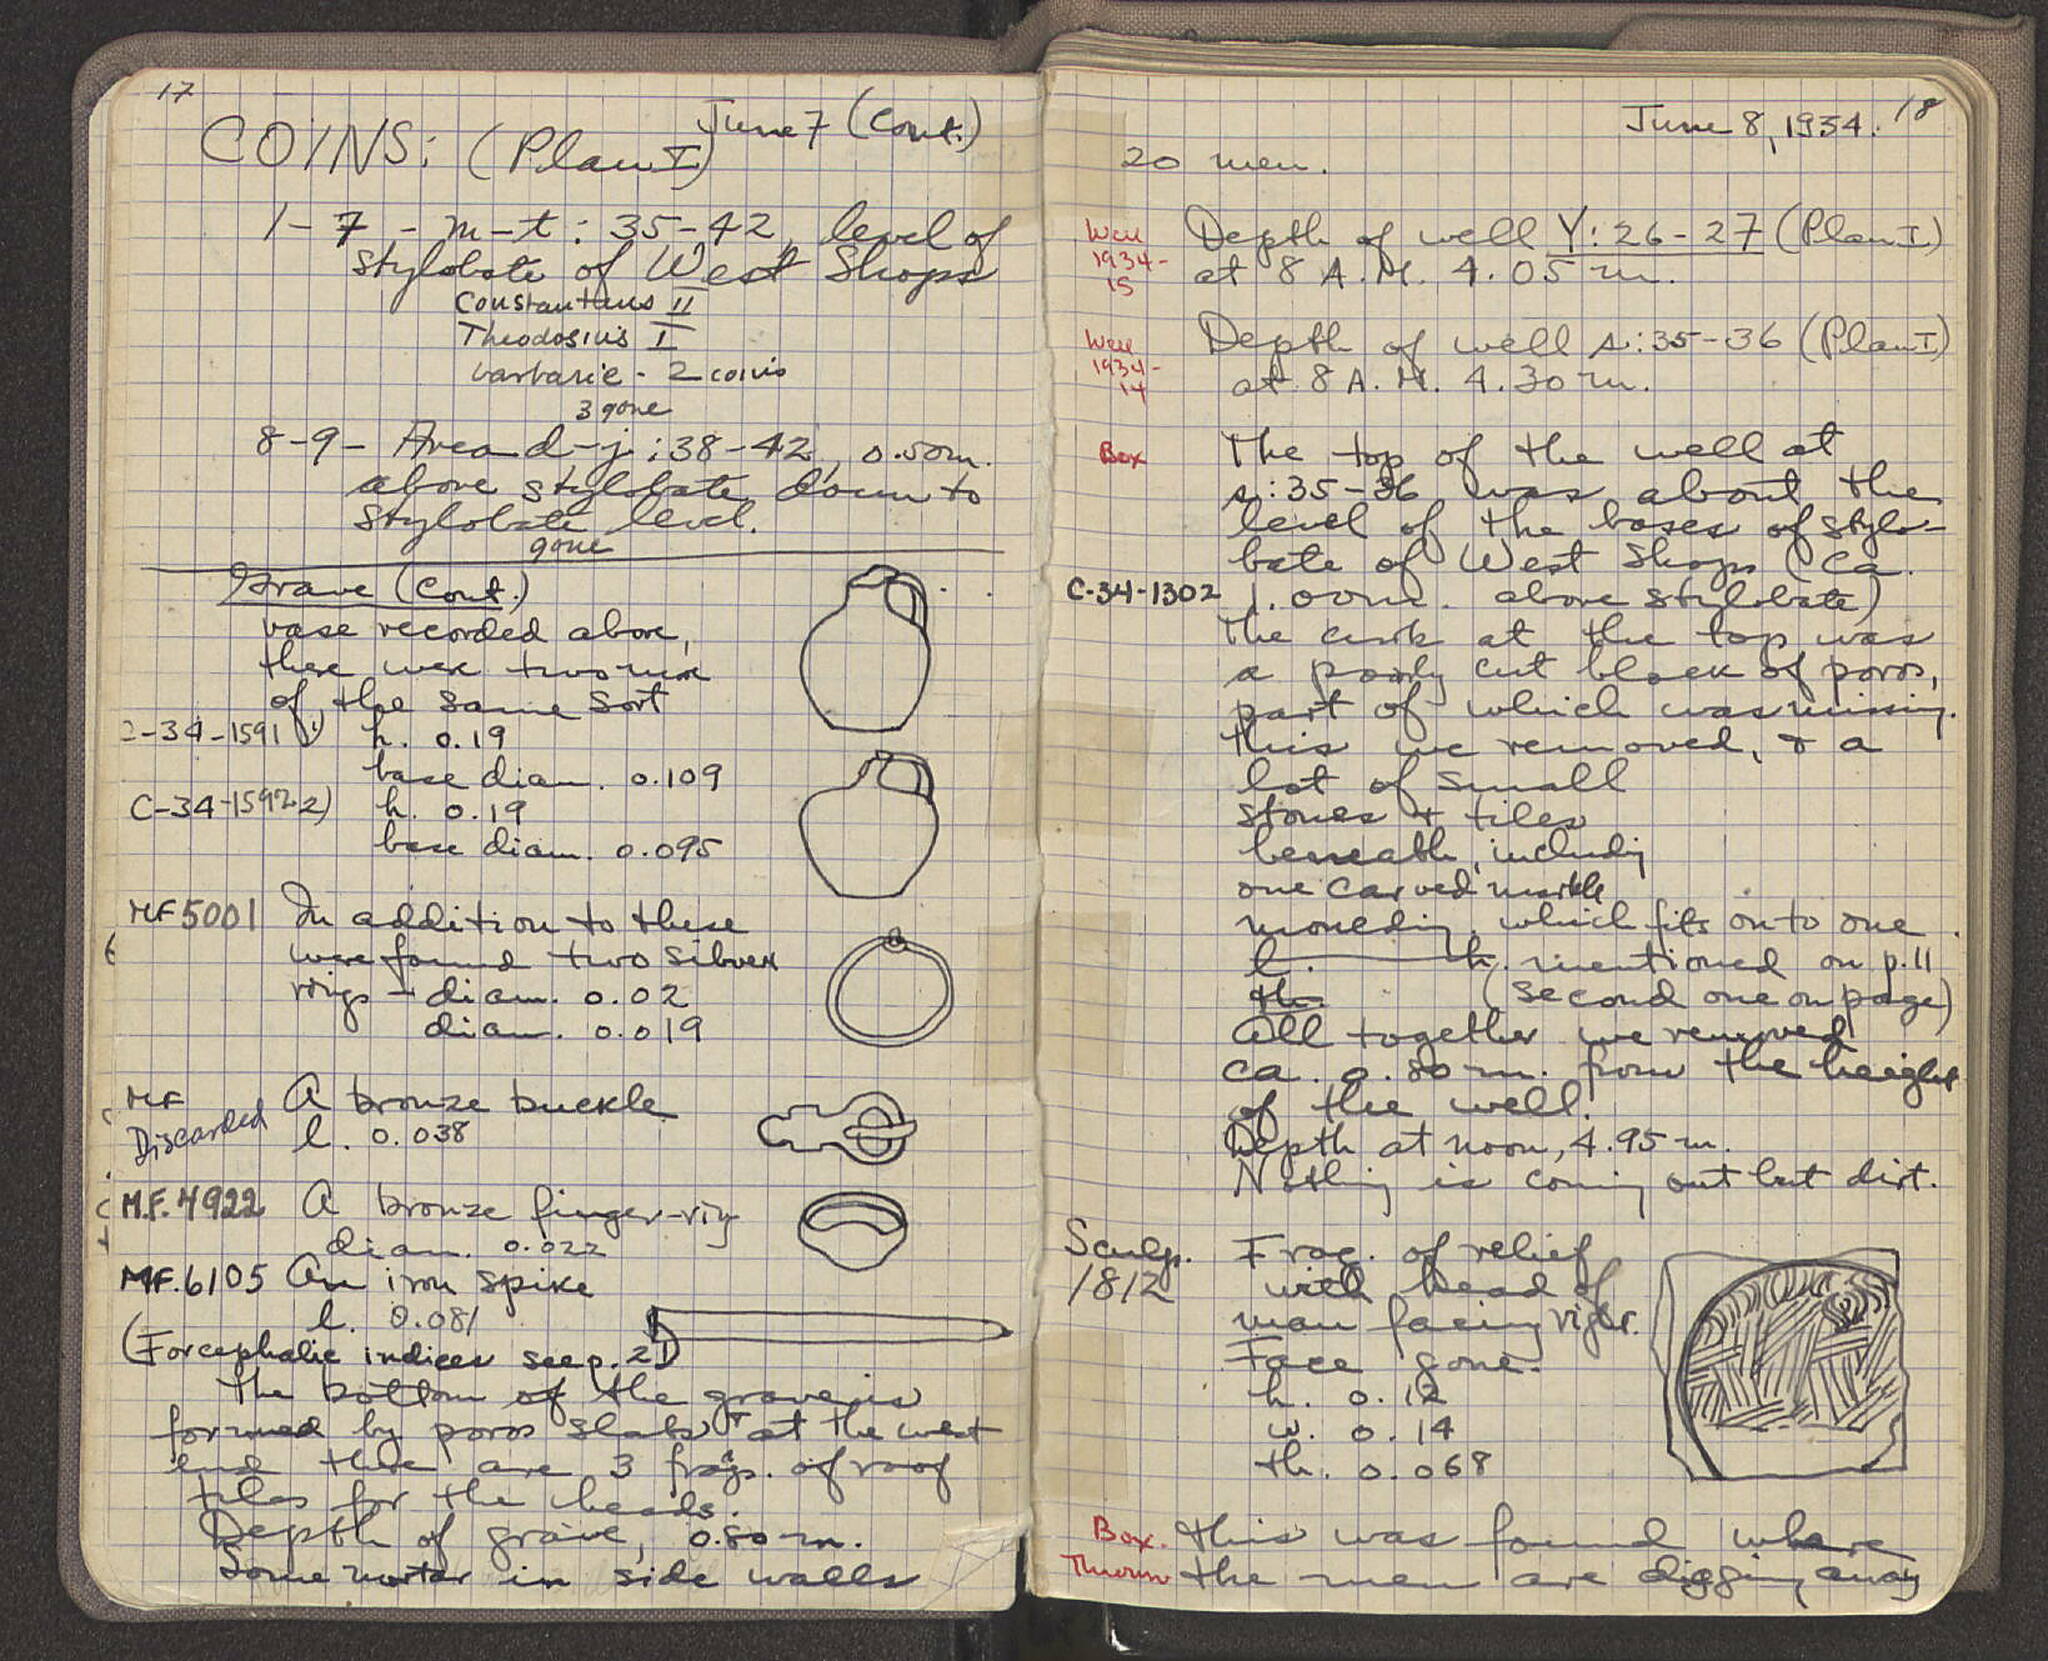 17
June 7 (Cont.)
COINS: (Plan I)
1-7 - m-t: 35-42, level of
stylobate of West Shops
Constantius II
Theodosius I
barbaric - 2 coins
3 gone
8-9- Area d-j: 38-42, 0.50m.
above stylobate down to
stylobate level.
gone
Grave (Cont.)
vase recorded above,
there were two more
of the same sort
C-34-1591 1) h. 0.19
base diam. 0.109
C-34-1592 2) h. 0.19
base diam. 0.095
MF 5001 In addition to these
were found two silver
rings - diam. 0.02
diam. 0.019
MF Discarded A bronze buckle
l. 0.038
M.F. 4922 A bronze finger-ring
diam. 0.022
MF. 6105 An iron spike
l. 0.081
(For cephalic indices see p. 21)
The bottom of the grave is
formed by poros slabs at the west
end there are 3 frags. of roof
tiles for the heads.
Depth of grave, 0.80 m.
Some mortar in side walls
18
June 8, 1934.
20 men.
Well 1934-15 Depth of well Y: 26-27 (Plan I)
at 8 A.M. 4.05 m.
Well 1934-14 Depth of well s: 35-36 (Plan I)
at 8 A.M. 4.30 m.
Box The top of the well at
s: 35-36 was about the
level of the bases of stylo-
bate of West Shops (ca.
C-34-1302 1.00m. above stylobate)
The curb at the top was
a poorly cut block of poros,
part of which was missing.
This we removed, + a
lot of small
stones + tiles
beneath, including
one carved marble
moulding, which fits on to one
l. h. mentioned on p. 11
th. (second one on page)
All together we removed
ca. 0.80 m. from the height
of the well.
Depth at noon, 4.95 m.
Nothing is coming out but dirt.
Sculp. 1812 Frag. of relief
with head of
man facing right.
Face gone.
h. 0.12
w. 0.14
th. 0.068
Box. This was found where
Thrown the men are digging away